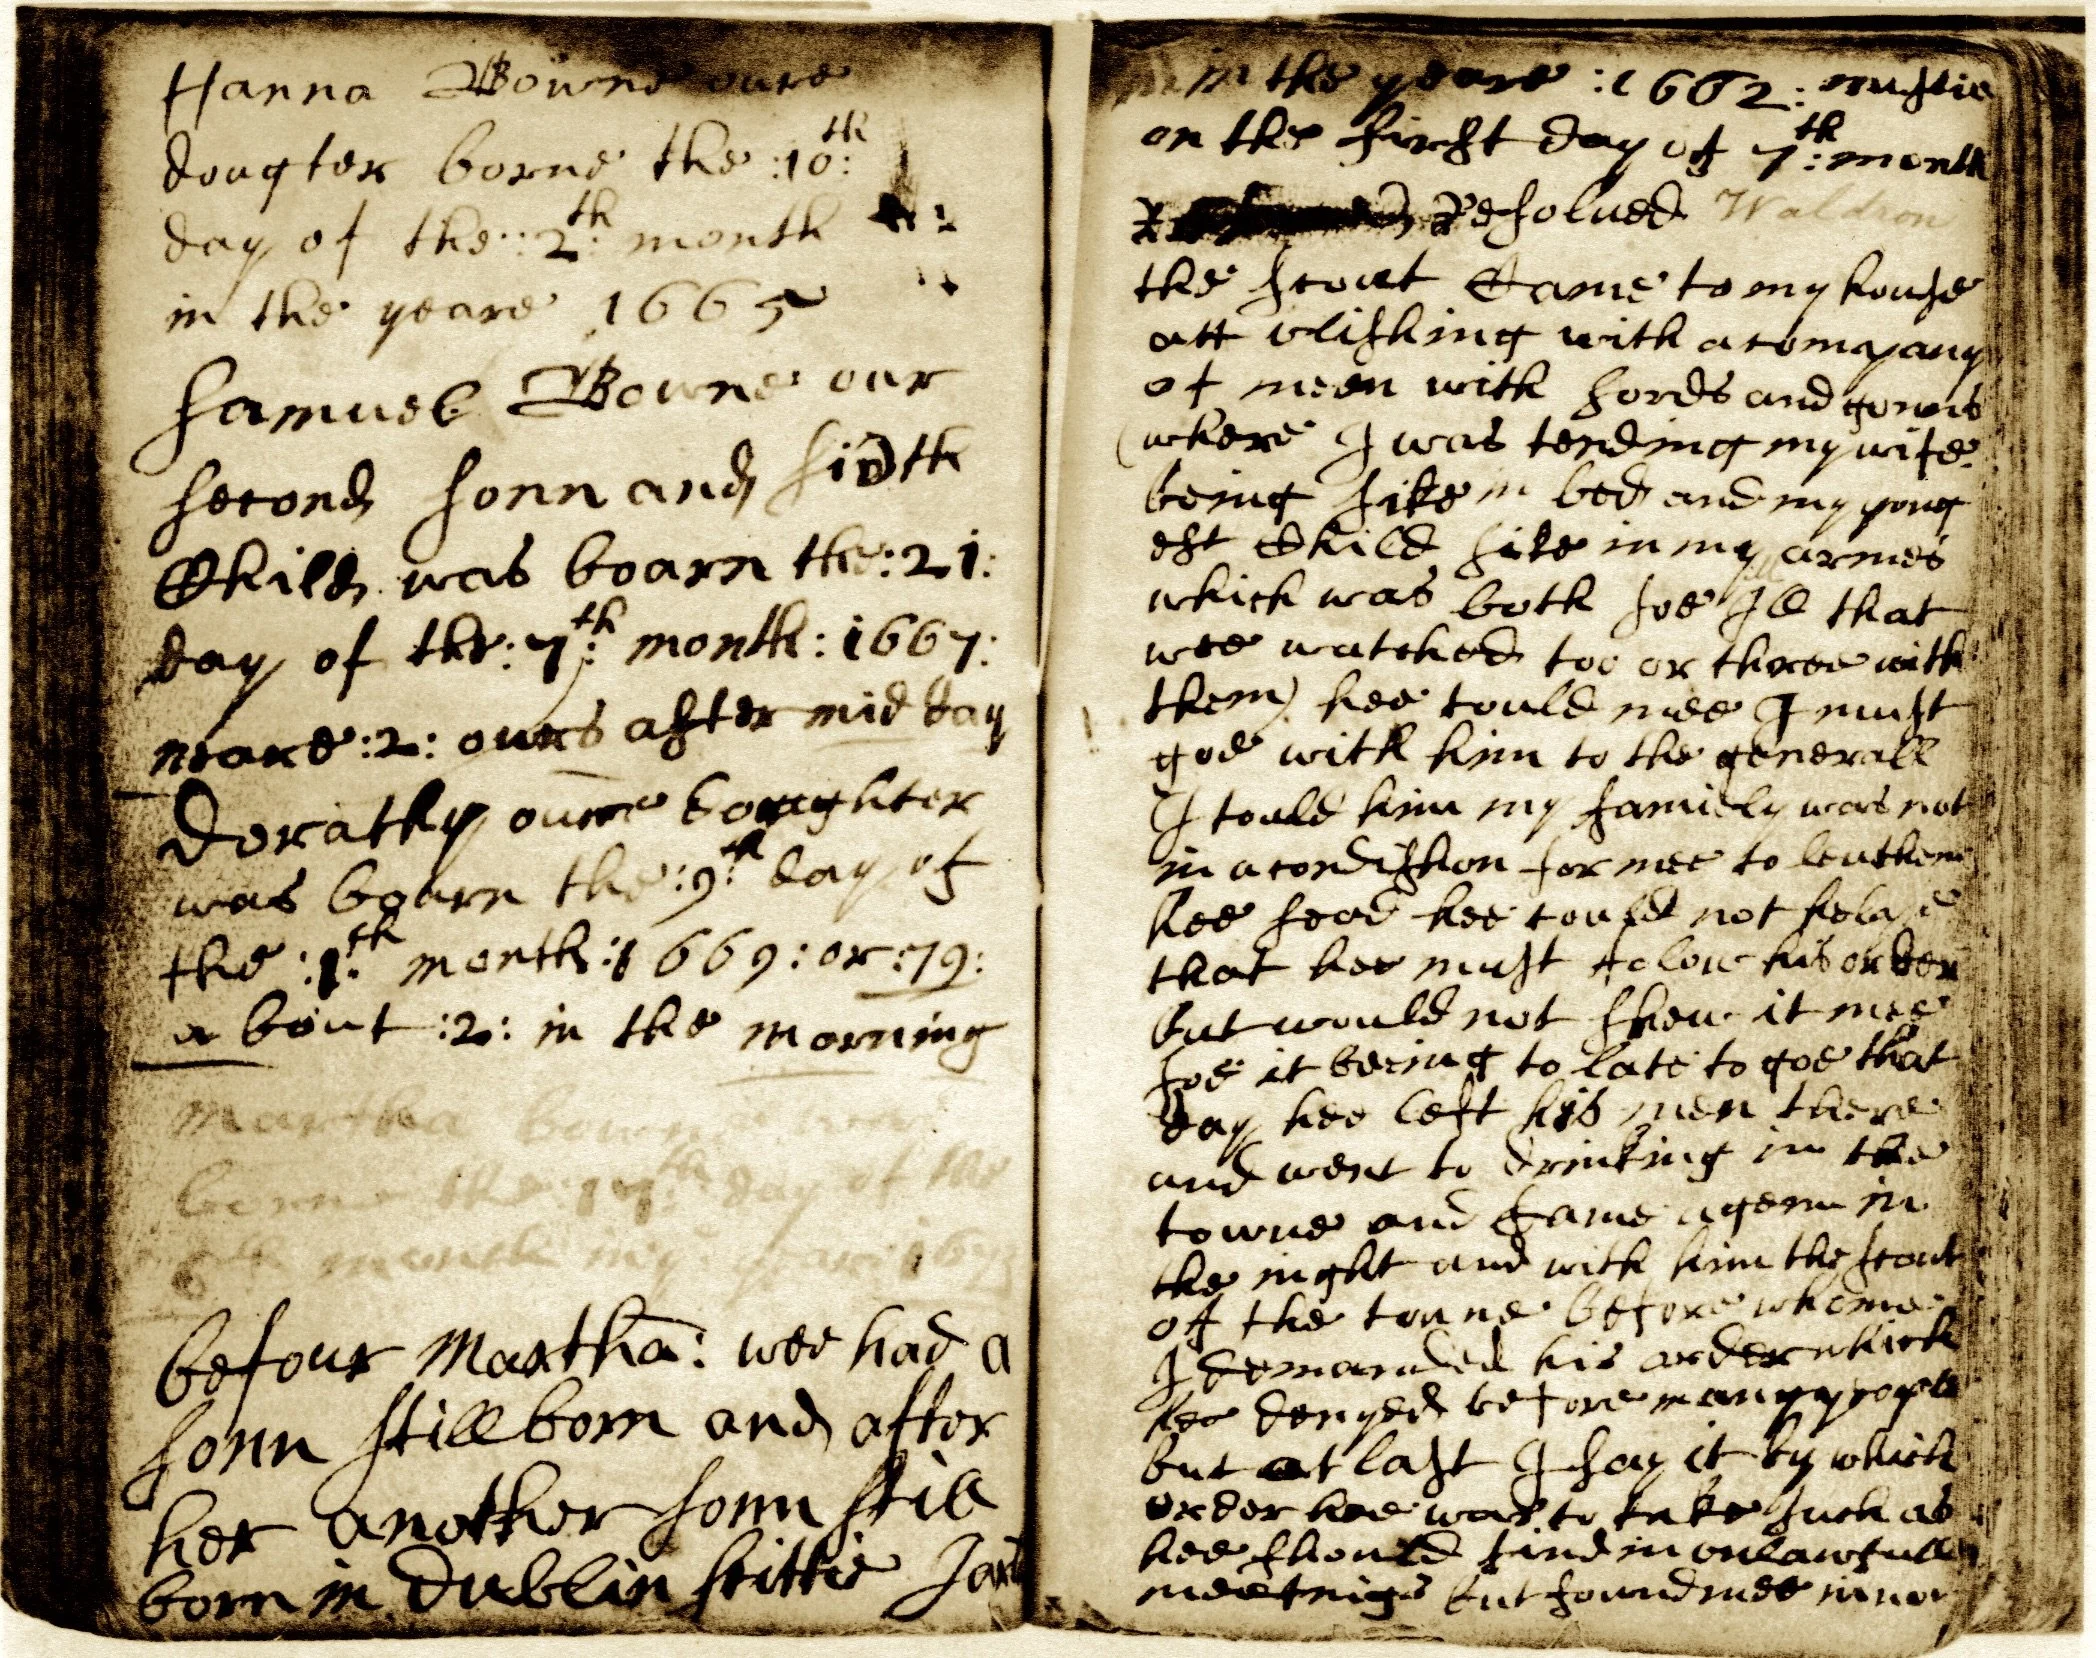 Hanna Bowne oure
dougter borne the :10:th
day of the :2:th month
in the yeare 1665
Samuel Bowne our
second sonn and sixth
Child was boarn the :21:
day of the :7:th month: 1667:
neare :2: ours after mid day
Dorathy oure doughter
was boarn the :9:th day of
the :1:th month :1669: or :79:
a bout :2: in the morning
Martha bowne
borne the 17th day of the
6th month in
befour Martha: wee had a
sonn still born and after
her another sonn still
born in Dublin sittie
in the yeare :1662:
on the first day of 7:th month
Resolued Waldron
the scout Came to my house
att vlishing with a company
of meen with sords and gonns
(where I was tending my wife
being sike in bed and my yong
est Child sike in my armes
which was both soe Ill that
wee watched too or three with
them) hee tould mee I must
goe with him to the generall
I tould him my famiely was not
in a condishon for mee to leuthem
hee sead hee could not helpe
that hee must folow his order
but would not shew it mee
soe it beeing to late to goe that
day hee left his men there
and went to drinking in the
towne and Came agen in
the night and with him the scout
of the towne before whome
I demanded his order which
hee denyed before many people
but at last I say it by which
order hee was to take such as
hee should find in onlawfull
meetings but found mee in nor